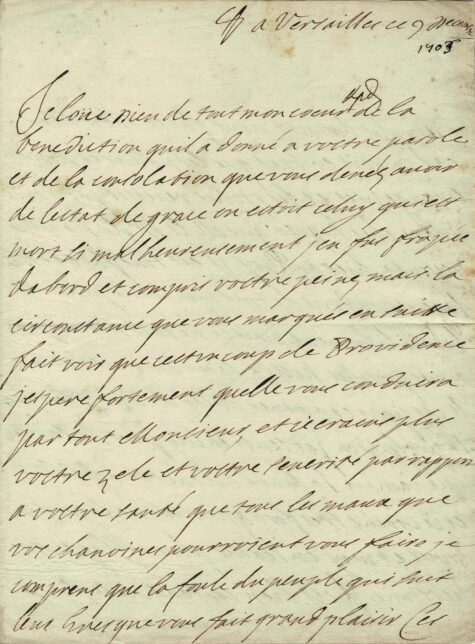 a Versailles ce 9
1705
Je loue dieu de tout mon coeur de la
benediction quil a donné a vostre parole
et de la consolation que vous devez avoir
de lestat de grace ou estoit celuy qui est
mort si malheureusement jen fus frapée
dabord et compris vostre peine mais la
circonstance que vous marqués en suitte
fait voir que cest un coup de Providence
jespere fortement quelle vous conduira
par tout Monsieur et je crains plus
vostre zele et vostre severité par rapport
a vostre santé que tous les maux que
vos chanoines pourroient vous faire je
comprens que la foule du peuple qui suit
que vous fait grand plaisir Ces